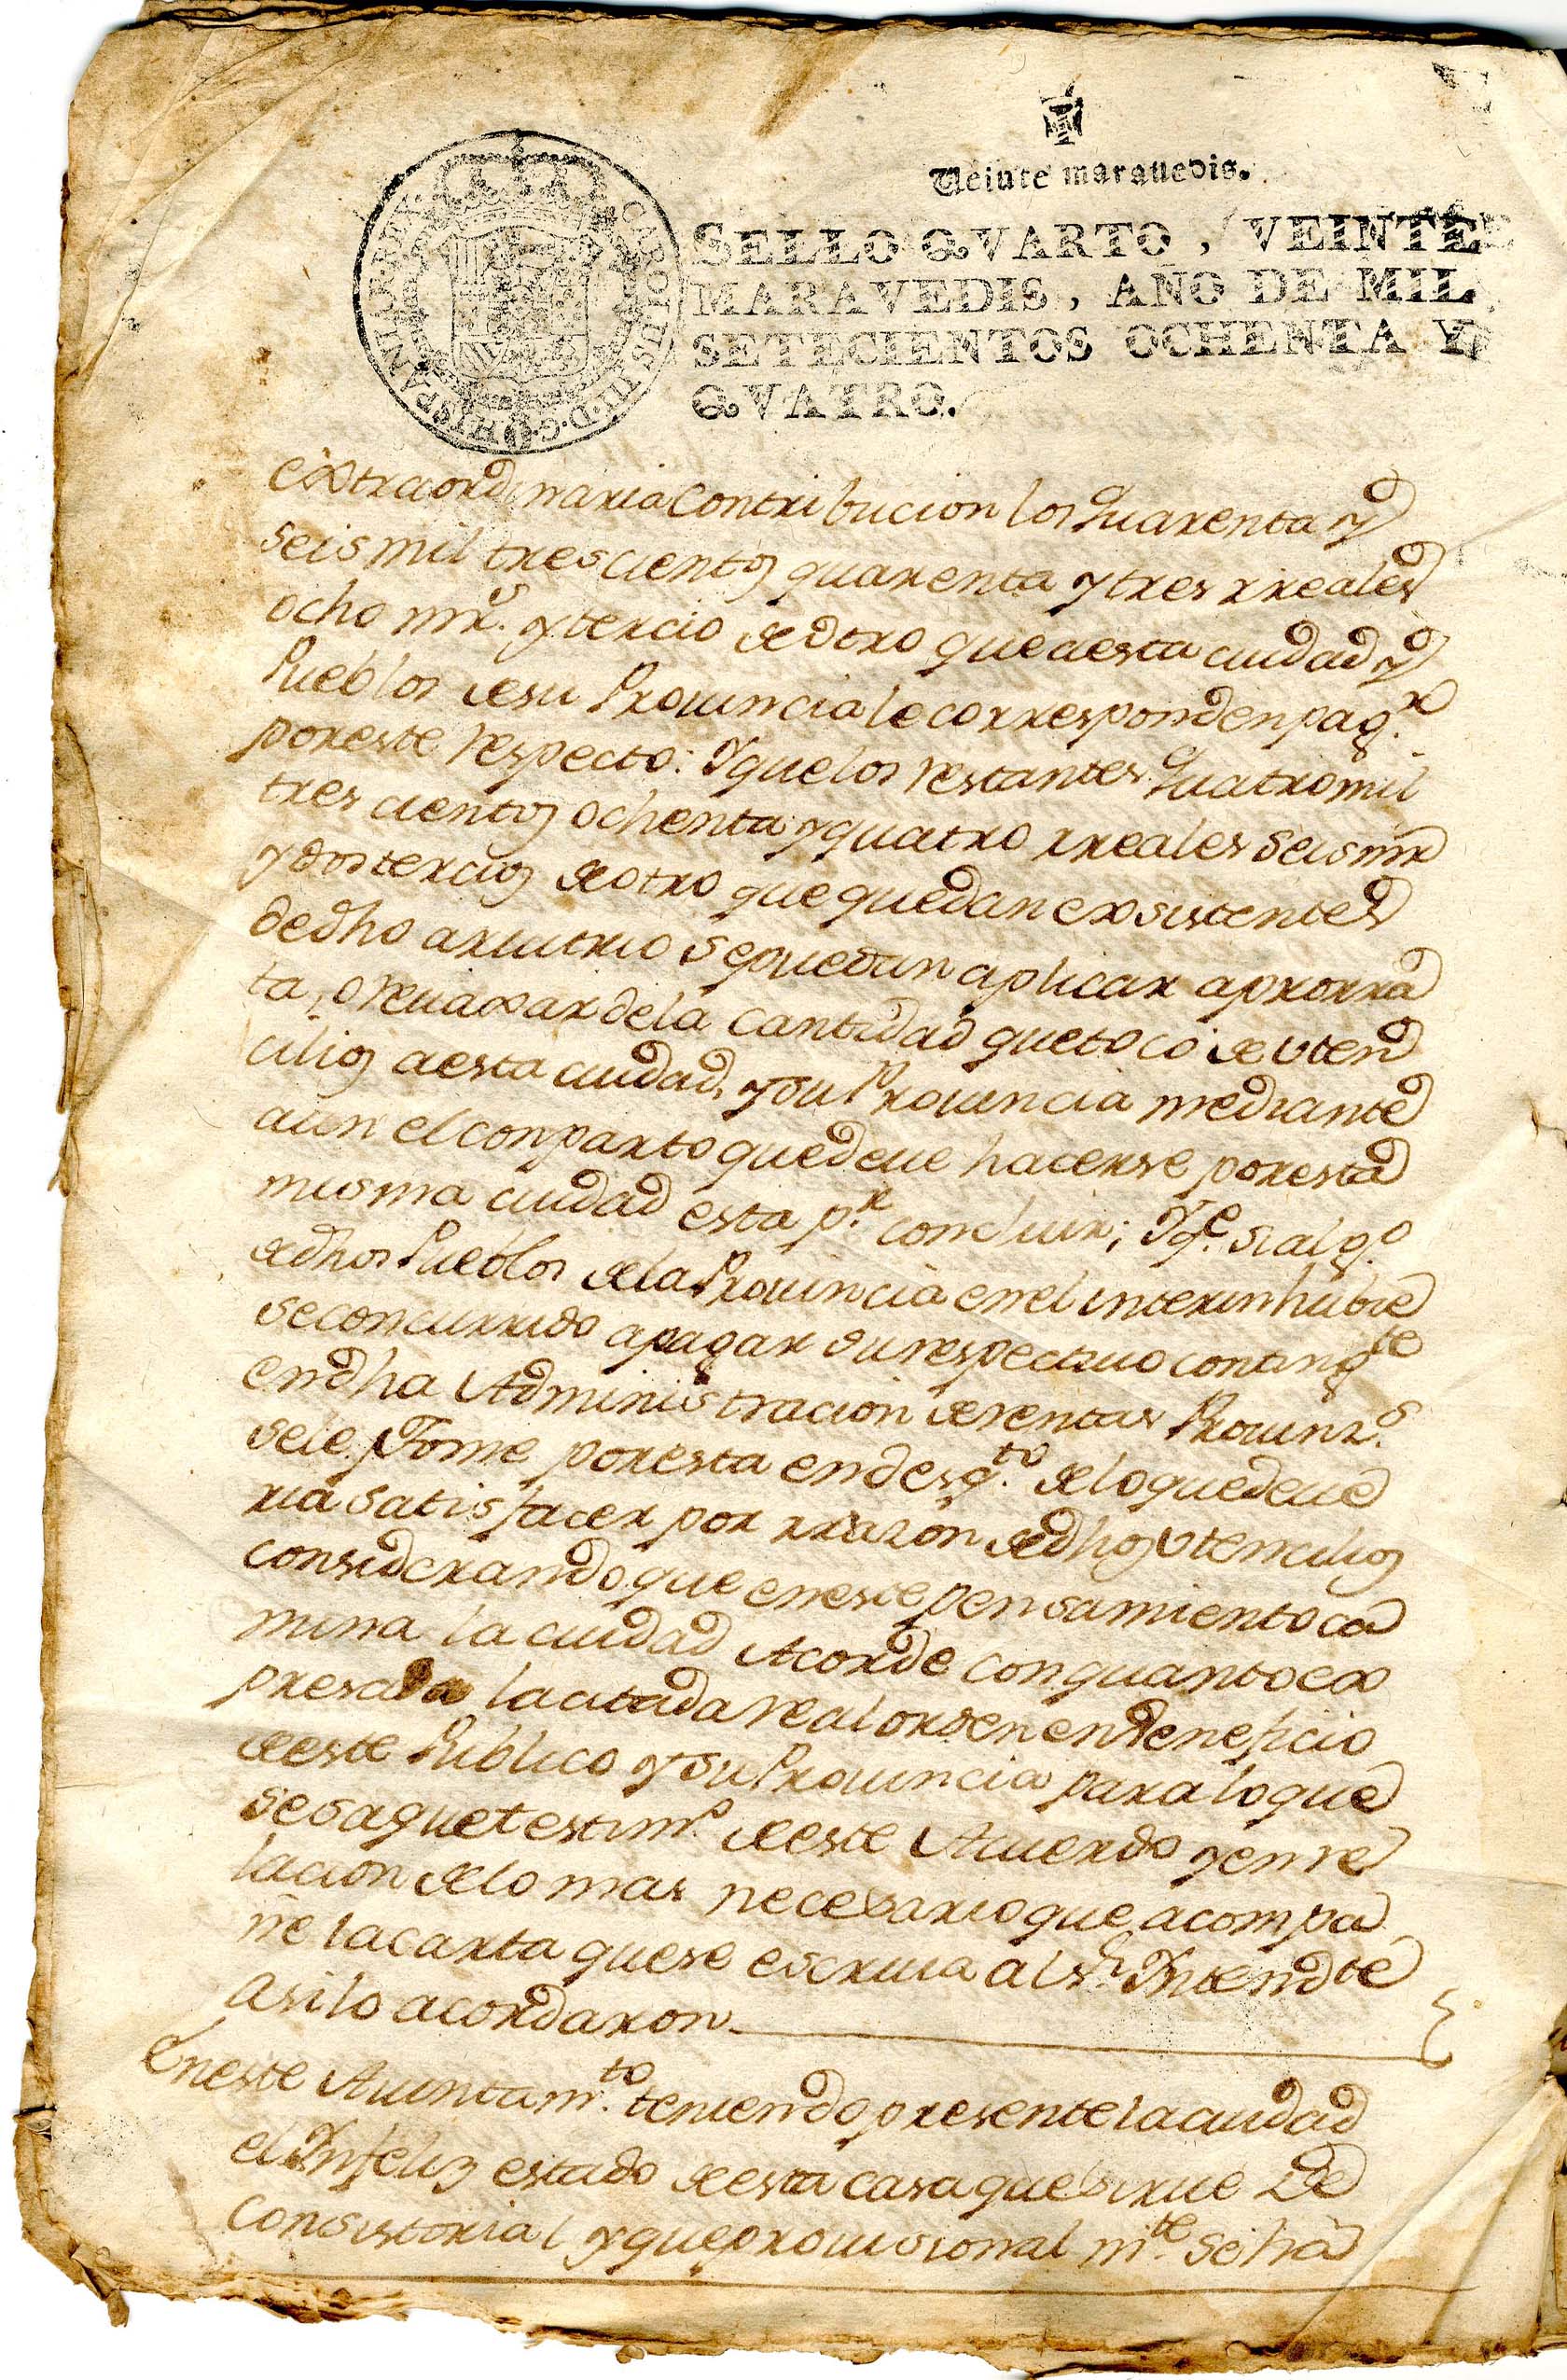 Veinte maravedis.
SELLO QVARTO, VEINTE
MARAVEDIS, AÑO DE MIL
SETECIENTOS OCHENTA Y
QVATRO.
CAROLUS III D.G. HISPANIAR. REX
extraordinaria contribucion los quarenta y
seis mil trescientos quarenta y tres rreales
ocho mrs. y tercio de otro que a esta ciudad y
Pueblos de su Prouincia le corresponden pagar
por este respecto: Y que los restantes quatro mil
trescientos ochenta y quatro rreales seis mr
y dos tercios de otro que quedan exsistentes
de dho aruitrio se puedan aplicar a prorra
ta, o reuaxar de la cantidad que toco de vten
cilios a esta ciudad, y su Prouincia mediante
aun el conparto que deue hacerse por esta
misma ciudad esta pr. concluir; Y qe. si algo.
de dhos Pueblos de la Prouincia en el interin hubie
se concurrido a pagar su respectiuo contingte
en dha Administracion de rentas Prouinzs.
se le tome por esta en desqto. de lo que deue
ria satisfacer por rrazon de dhos vtencilios
considerando que en este pensamiento ca
mina la ciudad Acorde con quanto ex
presa la citada real orden en veneficio
de este Publico y su Prouincia para lo que
se saque testimo. de este Acuerdo y en re
lacion de lo mas necesario que acompa
ñe la carta que se escriua al Sr. Yntendte
asi lo acordaron
En este Aiuntamto. teniendo presente la ciudad
el Ynfeliz estado de esta casa que sirue de
Consistorial y que prouisional mte. se ha